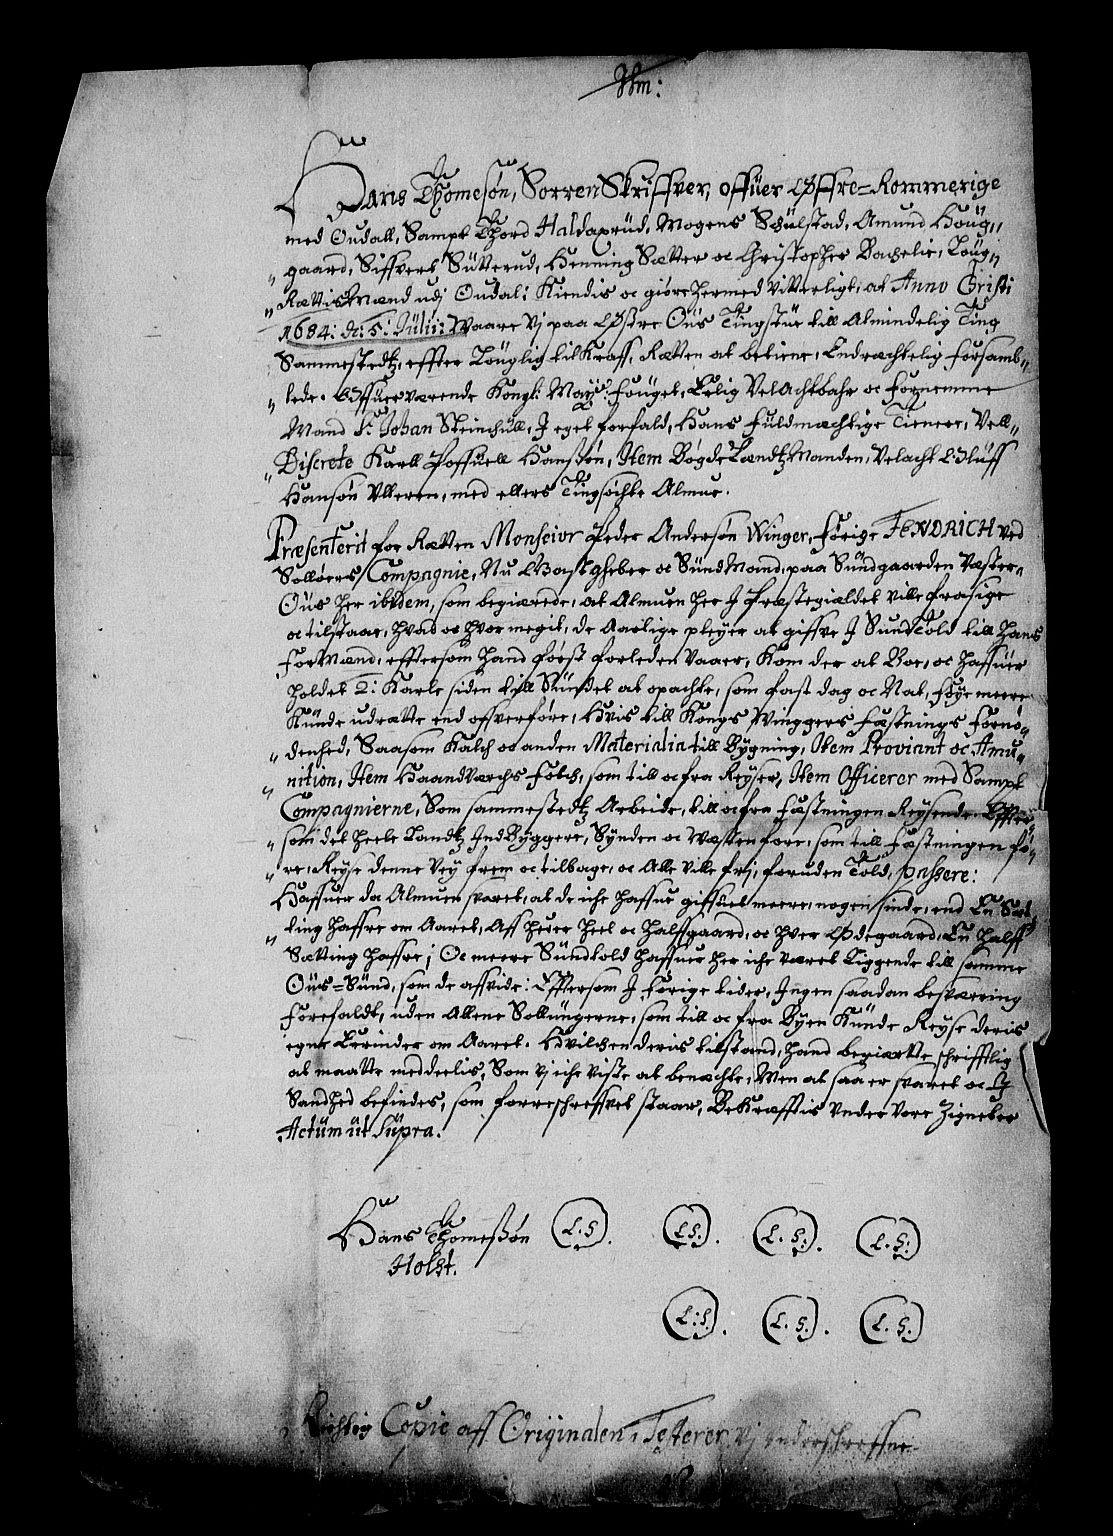 Hm:
Hans Thomesøn, Sorren Skriffver, offüer Øffre=Rommerige
med Oudall, Sampt Thord Haldaxrüd, Mogens Schülstad, Amund Houg„
„ gaard, Siffvert Sütterud, Henning Sætter oc Christopher Bachelie, Loug„
„ Rættismænd udj Oudal: Kiendis oc giøre hermed vitterligt, at Anno Christi
1684: d: 5: Julii: Waare vj paa Østre Ous Tingstue till Almindelig Ting
Sammestedtz, effter Louglig tilKraff, Rætten at betiene, Endrachtelig forsamb„
„ lede. Offuerværende Kongl: Mayts: Fouget, Erlig Velachtbahr oc fornemme
Mand Sr: Johan Steinchüll, I eget forfald, Hans füldmechtige Tienere, Vell„
„ Discrete Karll Poffuell Hanssøn, Item Bøgde Lændtzmanden, Velacht Oluff
Hansøn Ulleren, med ellers Tingsøchte Almue.
Præsenterit for Rætten Monseivr Peder Andersøn Winger, forige FENDRICH ved
Solløers Compagnie, Nu Gastgheber oc Sünd Mand, paa Sündgaarden Væster„
Oüs her ibidem, som begiærede, at Almuen her I Præstegieldet ville frasige
oc tilstaae, hvad oc hvor megit, de Aarlige pleyer at giffve I Sund Told till hans
forMænd, efftersom hand først forleden Vaaer, kom der at Boe, oc haffüer
holdet 2: Karle siden till Sündet at opachte, som fast dag oc Nat, føye meere
Künde udrætte end offverføre, Hvis till Kongs Winggers fæstnings fornø„
„ denhed, Saasom Kalch oc anden Materialia till Bygning, Item Proviant oc Amu„
„ nition, Item Haandværchs folch, som till oc fra Reyser, Item Officerer med Sampt
Compagnierne, Som sammestedtz Arbeide, till oc fra fæstningen Reysende. Effter„
„ som det heele Landtz IndByggere, Synden oc Wæsten fore, som till fæstningen fø„
„ re, Reyse denne Vey frem oc tilbage, oc Alle ville frj, foruden Told, passere:
Haffuer da Almuen svaret, at de iche haffue giffuet meere, nogen sinde, end En Sæt„
„ ting Haffre om Aaret, Aff hver Heel oc Halffgaard, oc hver Ødegaard, En halff
Sætting haffre; Oc meere Sündtold haffuer her iche været Liggende till samme
Oüs=Sünd, som de affvide: Efftersom I forige tider, Ingen saadan besværing
forefaldt, uden Allene Sollüngerne, som till oc fra Byen Künde Reyse deris
egne Ærinder om Aaret. Hvilchen deris tilstand, hand begiærte schrifftlig
at maatte meddeelis, Som vj iche viste at benechte, Men at saa er svaret oc I
Sandhed befindes, som forreschreffvet staar, Bekræfftis under vore Zigneter
Actum üt Supra.
Hans Thomessøn L.S. L.S. L.S. L.S.
Holst.
L.S. L.S. L.S.
Richtig Copie aff Originalen, Testerer vj underschreffne